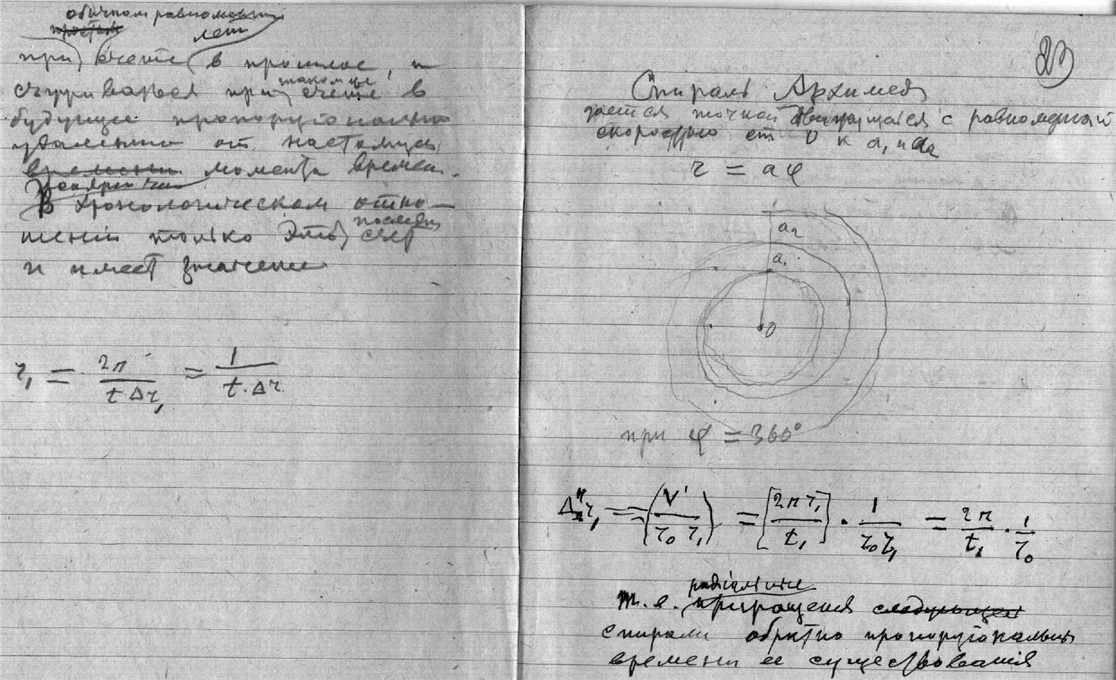 обычном равномерном
простом
лет
при счете в прошлое, и
таком же
при счете в
будущее пропорционально
удалению от настоящего
времени момента времен.
В хронологическом отно-
последн
шении только эта
и имеет значение
r₁ = 2π / t Δr₁ = 1 / t · Δr
23
Спираль Архимеда
дается точкой движущейся с равномерной
скоростью от O к a₁ и a₂
r = aφ
a₂
a₁
O
при φ = 360°
r₁ = (V' / r₀ r₁) = [2π r₁ / t₁] · 1 / r₀ r₁ = 2π / t₁ · 1 / r₀
радіальные
т. е. приращения следующей
спирали обратно пропорциональны
времени ее существования